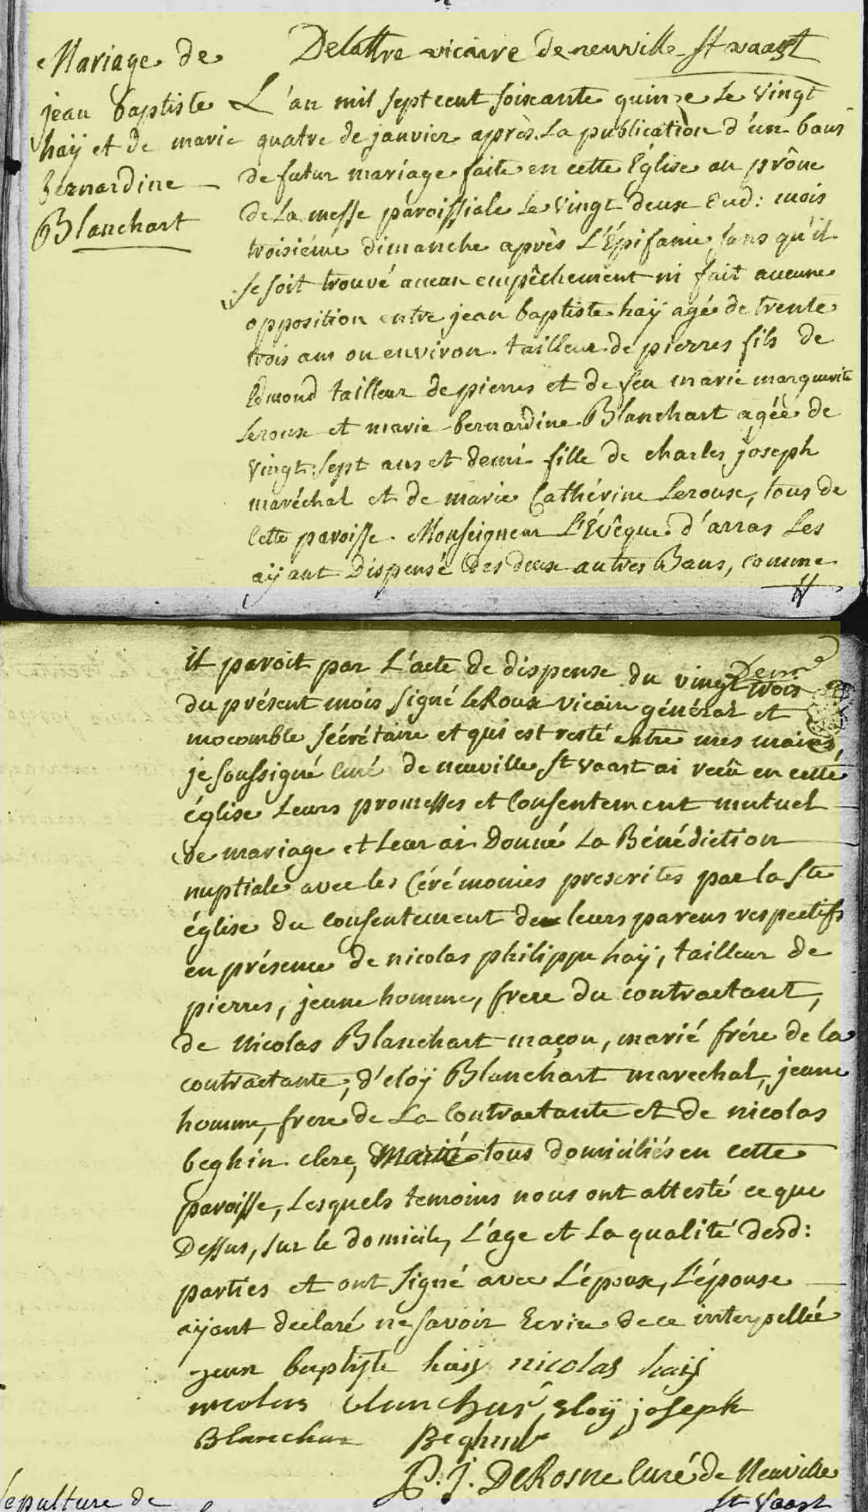 Delattre vicaire de neuville St vaast
Mariage de
jean baptiste
haÿ et de marie
Bernardine
Blanchart
L'an mil sept cent soixante quinze le vingt
quatre de janvier après la publication d'un bans
de futur mariage faite en cette Eglise au prône
de la messe paroissiale le vingt deux dud: mois
troisiéme dimanche après L'Epifanie sans qu'il
se soit trouvé aucun empêchement ni fait aucune
opposition entre jean baptiste haÿ agé de trente
trois ans ou environ tailleur de pierres fils de
Edmond tailleur de pierres et de feu marie marguerite
Leroux et marie bernardine Blanchart agée de
vingt sept ans et demi fille de charles joseph
maréchal et de marie Cathérine Leroux, tous de
cette paroisse. Monseigneur L'Evêque d'arras Les
aÿant Dispensé des deux autres Bans, comme
il paroit par L'acte de dispense du vingt trois
du présent mois signé leRoux vicaire général et
mocomble sécrétaire et qui est resté entre mes mains,
je soussigné curé de neuville St vaast ai recû en cette
église Leurs promesses et Consentement mutuel
de mariage et leur ai Donné La Bénédiction
nuptiale avec les Cérémonies prescrites par la Ste
église du consentement de leurs parens respectifs
en présence de nicolas philippe haÿ, tailleur de
pierres, jeune homme, frere du contractant,
de Nicolas Blanchart maçon, marié frére de la
contractante, d'eloÿ Blanchart marechal, jeune
homme, frere de La Contractante et de nicolas
beghin clerc, Marié tous domiciliés en cette
paroisse, Lesquels temoins nous ont attesté ce que
Dessus, sur le domicile, L'age et La qualité desd:
parties et ont signé avec L'époux, L'épouse
aÿant declaré ne savoir Ecrire de ce interpellée
jean baptiste haÿ nicolas haÿ
nicolas blanchar eloÿ joseph
Blanchar Beghin
P. J. DeRosne Curé de Neuville
St Vaast
Sépulture de